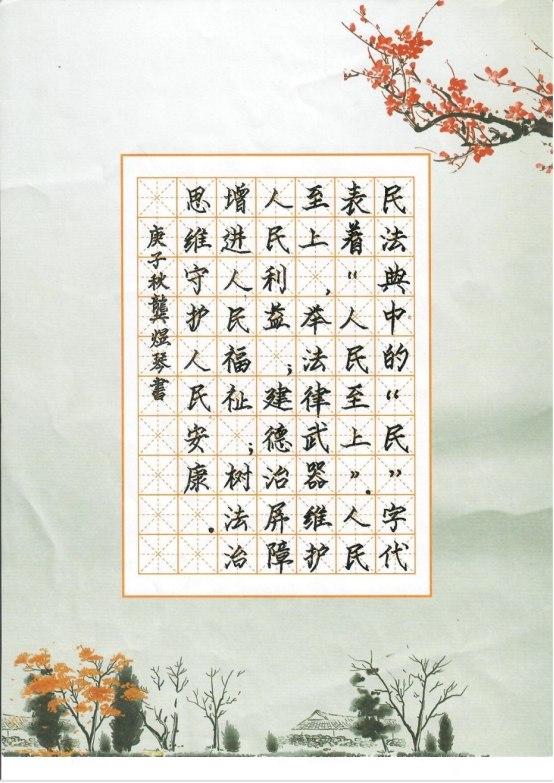 民法典中的“民”字代
表着“人民至上”。人民
至上，举法律武器维护
人民利益；建德治屏障
增进人民福祉；树法治
思维守护人民安康。
庚子秋龔煜琴書